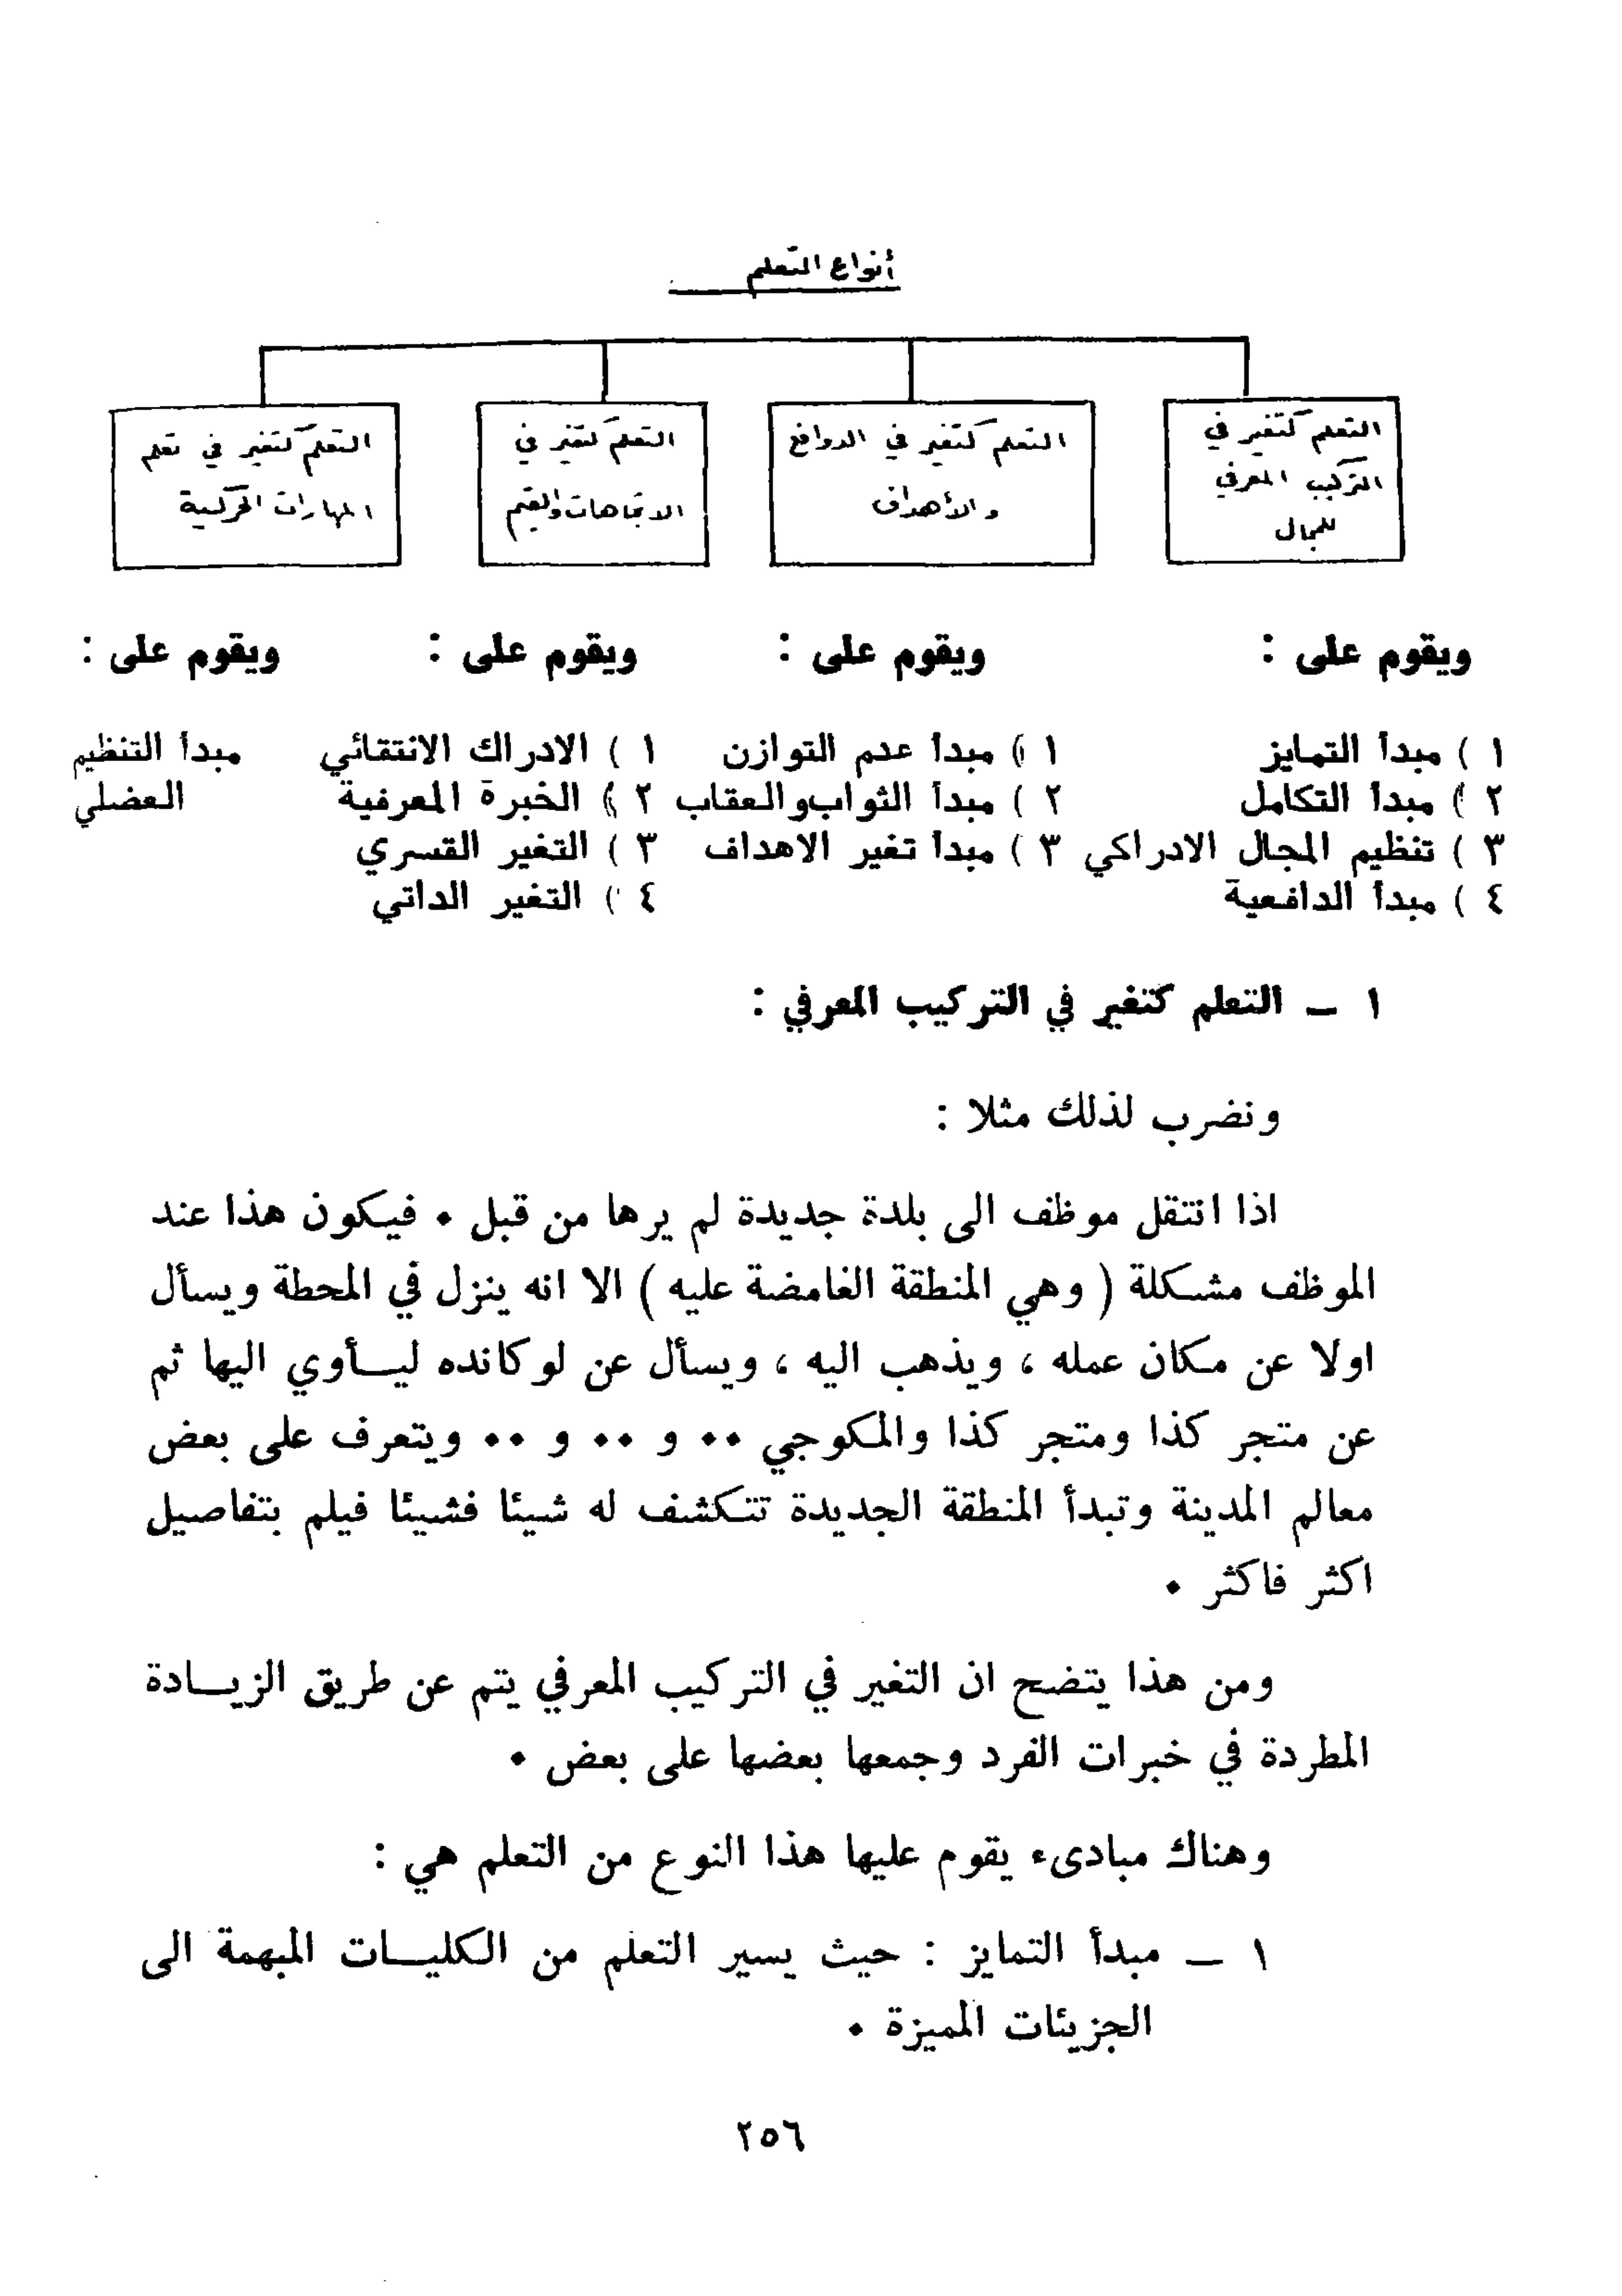 أنواع التعلم
التعلم كتغير في
التركيب المعرفي
للمجال
التعلم كتغير في الدوافع
والأهداف
التعلم كتغير في
الاتجاهات والقيم
التعلم كتغير في تعلم
المهارات الحركية
ويقوم على : ويقوم على : ويقوم على : ويقوم على :
١ ) مبدأ التمايز ١ ) مبدأ عدم التوازن ١ ) الادراك الانتقائي مبدأ التنظيم
٢ ) مبدأ التكامل ٢ ) مبدأ الثواب والعقاب ٢ ) الخبرة المعرفية العضلي
٣ ) تنظيم المجال الادراكي ٣ ) مبدأ تغير الاهداف ٣ ) التغير القسري
٤ ) مبدأ الدافعية ٤ ) التغير الداتي
١ ــ التعلم كتغير في التركيب المعرفي :
ونضرب لذلك مثلا :
اذا انتقل موظف الى بلدة جديدة لم يرها من قبل . فيكون هذا عند
الموظف مشكلة ( وهي المنطقة الغامضة عليه ) الا انه ينزل في المحطة ويسأل
اولا عن مكان عمله ، ويذهب اليه ، ويسأل عن لوكانده ليــأوي اليها ثم
عن متجر كذا ومتجر كذا والمكوجي .. و .. و .. ويتعرف على بعض
معالم المدينة وتبدأ المنطقة الجديدة تتكشف له شيئا فشيئا فيلم بتفاصيل
اكثر فاكثر .
ومن هذا يتضح ان التغير في التركيب المعرفي يتم عن طريق الزيــادة
المطردة في خبرات الفرد وجمعها بعضها على بعض .
وهناك مبادىء يقوم عليها هذا النوع من التعلم هي :
١ ــ مبدأ التمايز : حيث يسير التعلم من الكليــات المبهمة الى
الجزيئات المميزة .
٢٥٦